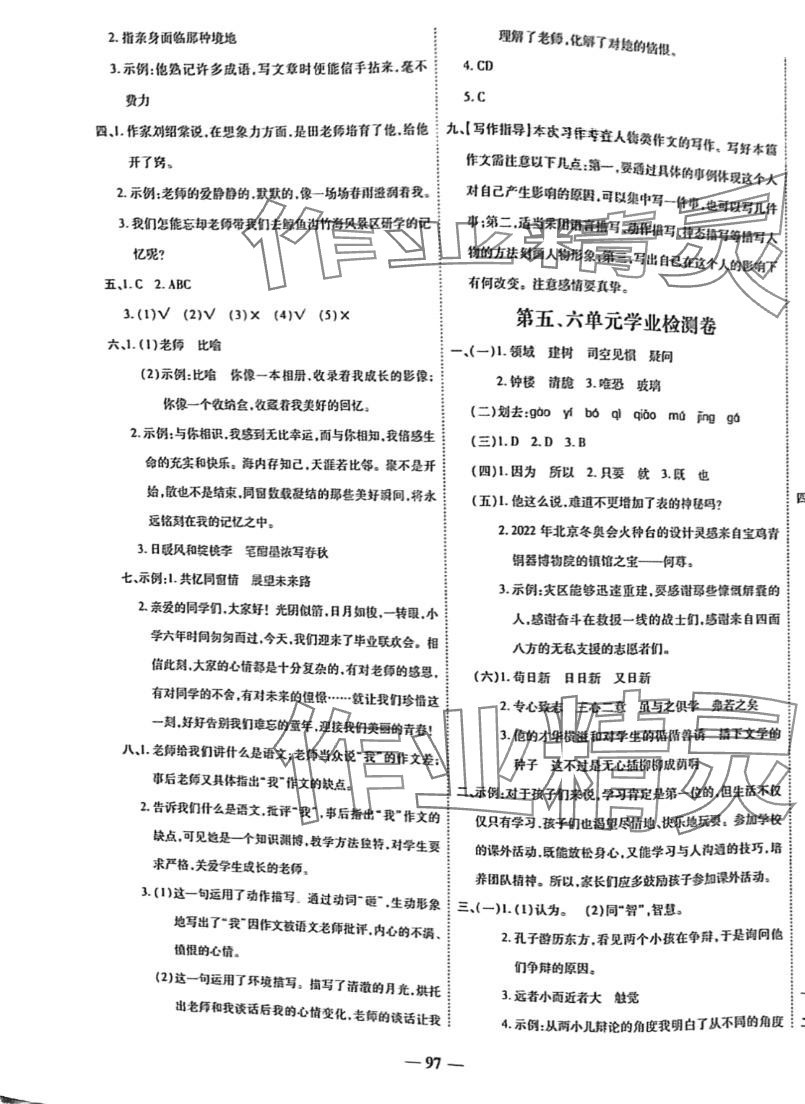 2. 指亲身面临那种境地
3. 示例:他熟记许多成语,写文章时便能信手拈来,毫不
费力
四、1. 作家刘绍棠说,在想象力方面,是田老师培育了他,给他
开了窍。
2. 示例:老师的爱静静的,默默的,像一场场春雨滋润着我。
3. 我们怎能忘却老师带我们去鲸鱼沟竹海风景区研学的记
忆呢?
五、1. C 2. ABC
3. (1)√ (2)√ (3)× (4)√ (5)×
六、1. (1)老师 比喻
(2)示例:比喻 你像一本相册,收录着我成长的影像;
你像一个收纳盒,收藏着我美好的回忆。
2. 示例:与你相识,我感到无比幸运,而与你相知,我倍感生
命的充实和快乐。海内存知己,天涯若比邻。聚不是开
始,散也不是结束,同窗数载凝结的那些美好瞬间,将永
远铭刻在我的记忆之中。
3. 日暖风和绽桃李 笔酣墨浓写春秋
七、示例:1. 共忆同窗情 展望未来路
2. 亲爱的同学们,大家好!光阴似箭,日月如梭,一转眼,小
学六年时间匆匆而过,今天,我们迎来了毕业联欢会。相
信此刻,大家的心情都是十分复杂的,有对老师的感恩,
有对同学的不舍,有对未来的憧憬……就让我们珍惜这
一刻,好好告别我们难忘的童年,迎接我们美丽的青春!
八、1. 老师给我们讲什么是语文;老师当众说“我”的作文差;
事后老师又具体指出“我”作文的缺点。
2. 告诉我们什么是语文,批评“我”,事后指出“我”作文的
缺点,可见她是一个知识渊博,教学方法独特,对学生要
求严格,关爱学生成长的老师。
3. (1)这一句运用了动作描写。通过动词“砸”,生动形象
地写出了“我”因作文被语文老师批评,内心的不满、
愤恨的心情。
(2)这一句运用了环境描写。描写了清澈的月光,烘托
出老师和我谈话后我的心情变化,老师的谈话让我
理解了老师,化解了对她的恼恨。
4. CD
5. C
九、【写作指导】本次习作考查人物类作文的写作。写好本篇
作文需注意以下几点:第一,要通过具体的事例体现这个人
对自己产生影响的原因,可以集中写一件事,也可以写几件
事;第二,适当采用语言描写、动作描写、神态描写等描写人
物的方法刻画人物形象;第三,写出自己在这个人的影响下
有何改变。注意感情要真挚。
第五、六单元学业检测卷
一、(一)1. 领域 建树 司空见惯 疑问
2. 钟楼 清脆 3. 唯恐 玻璃
(二)划去:gào yí bó qì qiǎo mú jīng gá
(三)1. D 2. D 3. B
(四)1. 因为 所以 2. 只要 就 3. 既 也
(五)1. 他这么说,难道不更增加了表的神秘吗?
2. 2022 年北京冬奥会火种台的设计灵感来自宝鸡青
铜器博物院的镇馆之宝——何尊。
3. 示例:灾区能够迅速重建,要感谢那些慷慨解囊的
人,感谢奋斗在救援一线的战士们,感谢来自四面
八方的无私支援的志愿者们。
(六)1. 苟日新 日日新 又日新
2. 专心致志 三心二意 虽与之俱学 弗若之矣
3. 他的才华横溢和对学生的循循善诱 播下文学的
种子 这不过是无心插柳柳成荫啊
二、示例:对于孩子们来说,学习肯定是第一位的,但生活不仅
仅只有学习,孩子们也渴望尽情地、快乐地玩耍。参加学校
的课外活动,既能放松身心,又能学习与人沟通的技巧,培
养团队精神。所以,家长们应多鼓励孩子参加课外活动。
三、(一)1. (1)认为。 (2)同“智”,智慧。
2. 孔子游历东方,看见两个小孩在争辩,于是询问他
们争辩的原因。
3. 远者小而近者大 触觉
4. 示例:从两小儿辩论的角度我明白了从不同的角度
— 97 —
作业精灵
作业精灵